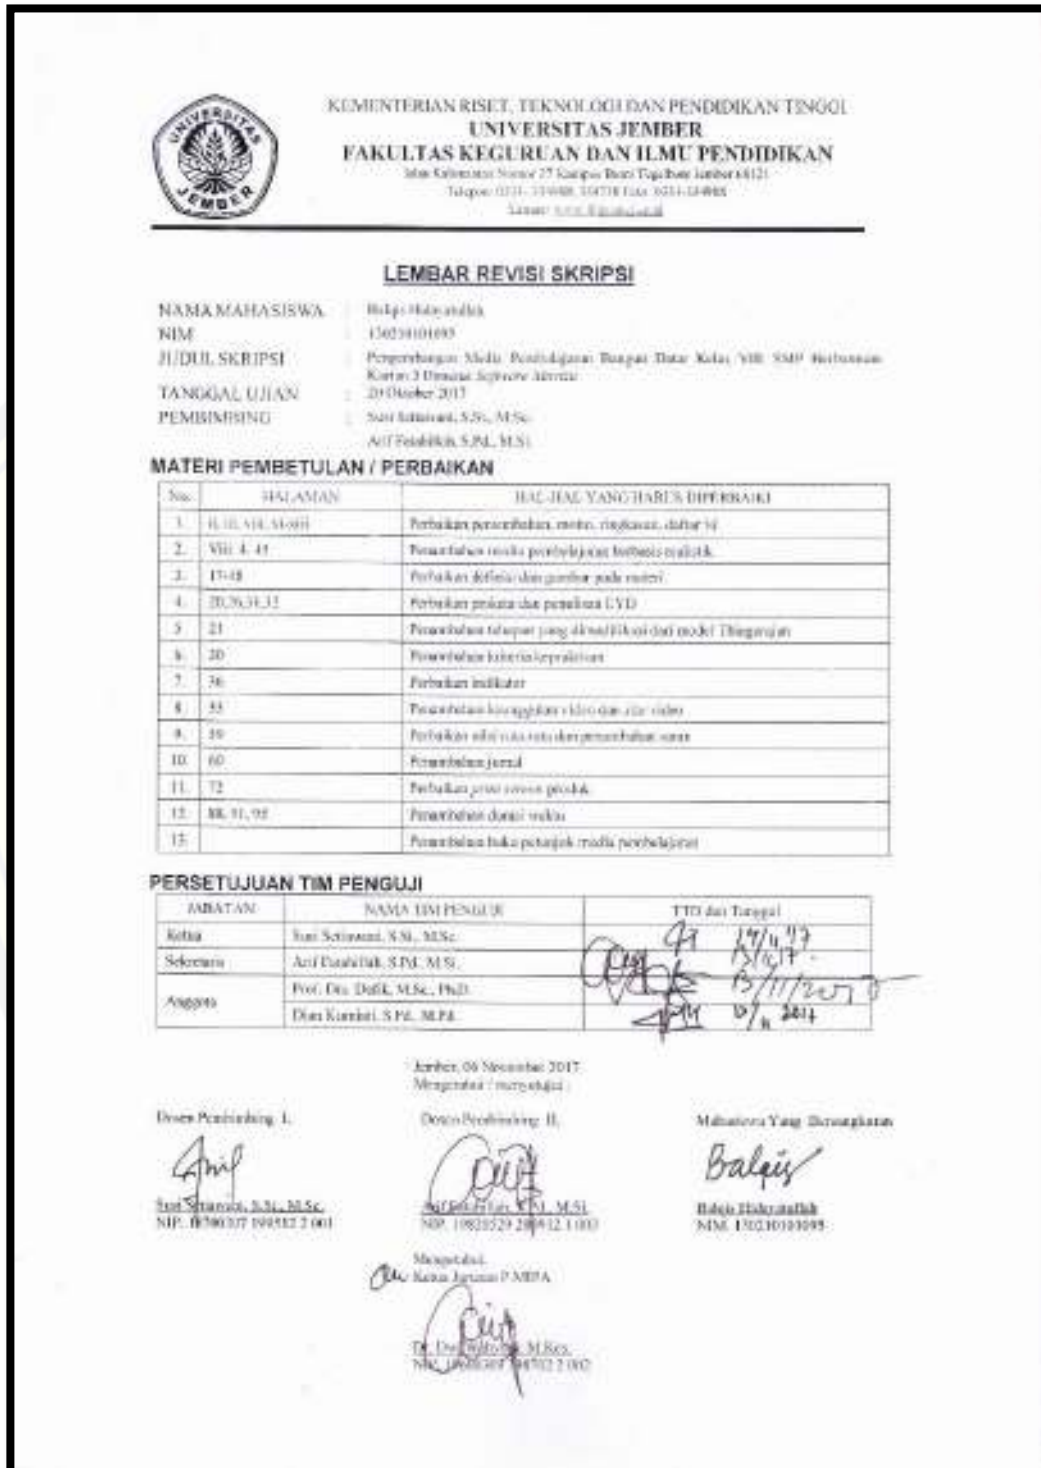 UNIVERSITAS
JEMBER
KEMENTERIAN RISET, TEKNOLOGI DAN PENDIDIKAN TINGGI
UNIVERSITAS JEMBER
FAKULTAS KEGURUAN DAN ILMU PENDIDIKAN
Jalan Kalimantan Nomor 37 Kampus Bumi Tegalboto Jember 68121
Telepon: 0331-
Laman:
LEMBAR REVISI SKRIPSI
NAMA MAHASISWA : Balqis Hidayatullah
NIM : 130210101095
JUDUL SKRIPSI : Pengembangan Media Pembelajaran Bangun Datar Kelas VIII SMP Berbantuan
Kartun 3 Dimensi Software
TANGGAL UJIAN : 20 Oktober 2017
PEMBIMBING : Susi Setiawani, S.Si., M.Sc.
Arif Fatahillah, S.Pd., M.Si.
MATERI PEMBETULAN / PERBAIKAN
No. HALAMAN HAL-HAL YANG HARUS DIPERBAIKI
1. Perbaikan persembahan, motto, ringkasan, daftar isi
2. Viii, 4, 45 Penambahan media pembelajaran berbasis realistik
3. 17-18 Perbaikan definisi dan gambar pada materi
4. Perbaikan dan penulisan EYD
5. 21 Penambahan tahapan yang dimodifikasi dari model Thiagarajan
6. 30 Penambahan kriteria kepraktisan
7. 36 Perbaikan indikator
8. 55 Penambahan keunggulan video dan alur video
9. 59 Perbaikan nilai rata-rata dan penambahan saran
10. 60 Penambahan jurnal
11. 72 Perbaikan print screen produk
12. 88, 91, 95 Penambahan durasi waktu
13. Penambahan buku petunjuk media pembelajaran
PERSETUJUAN TIM PENGUJI
JABATAN NAMA TIM PENGUJI TTD dan Tanggal
Ketua Susi Setiawani, S.Si., M.Sc.
Sekretaris Arif Fatahillah, S.Pd., M.Si.
Anggota Prof. Drs. Dafik, M.Sc., Ph.D. 13/11/2017
Dian Kurniati, S.Pd., M.Pd.
Jember, 06 November 2017
Mengetahui / menyetujui :
Dosen Pembimbing I, Dosen Pembimbing II, Mahasiswa Yang Bersangkutan
Balqis
Susi Setiawani, S.Si., M.Sc. Arif Fatahillah, S.Pd., M.Si. Balqis Hidayatullah
NIP. NIP. NIM. 130210101095
Mengetahui,
Ketua Jurusan P.MIPA
Dr. Dwi M.Kes.
NIP.